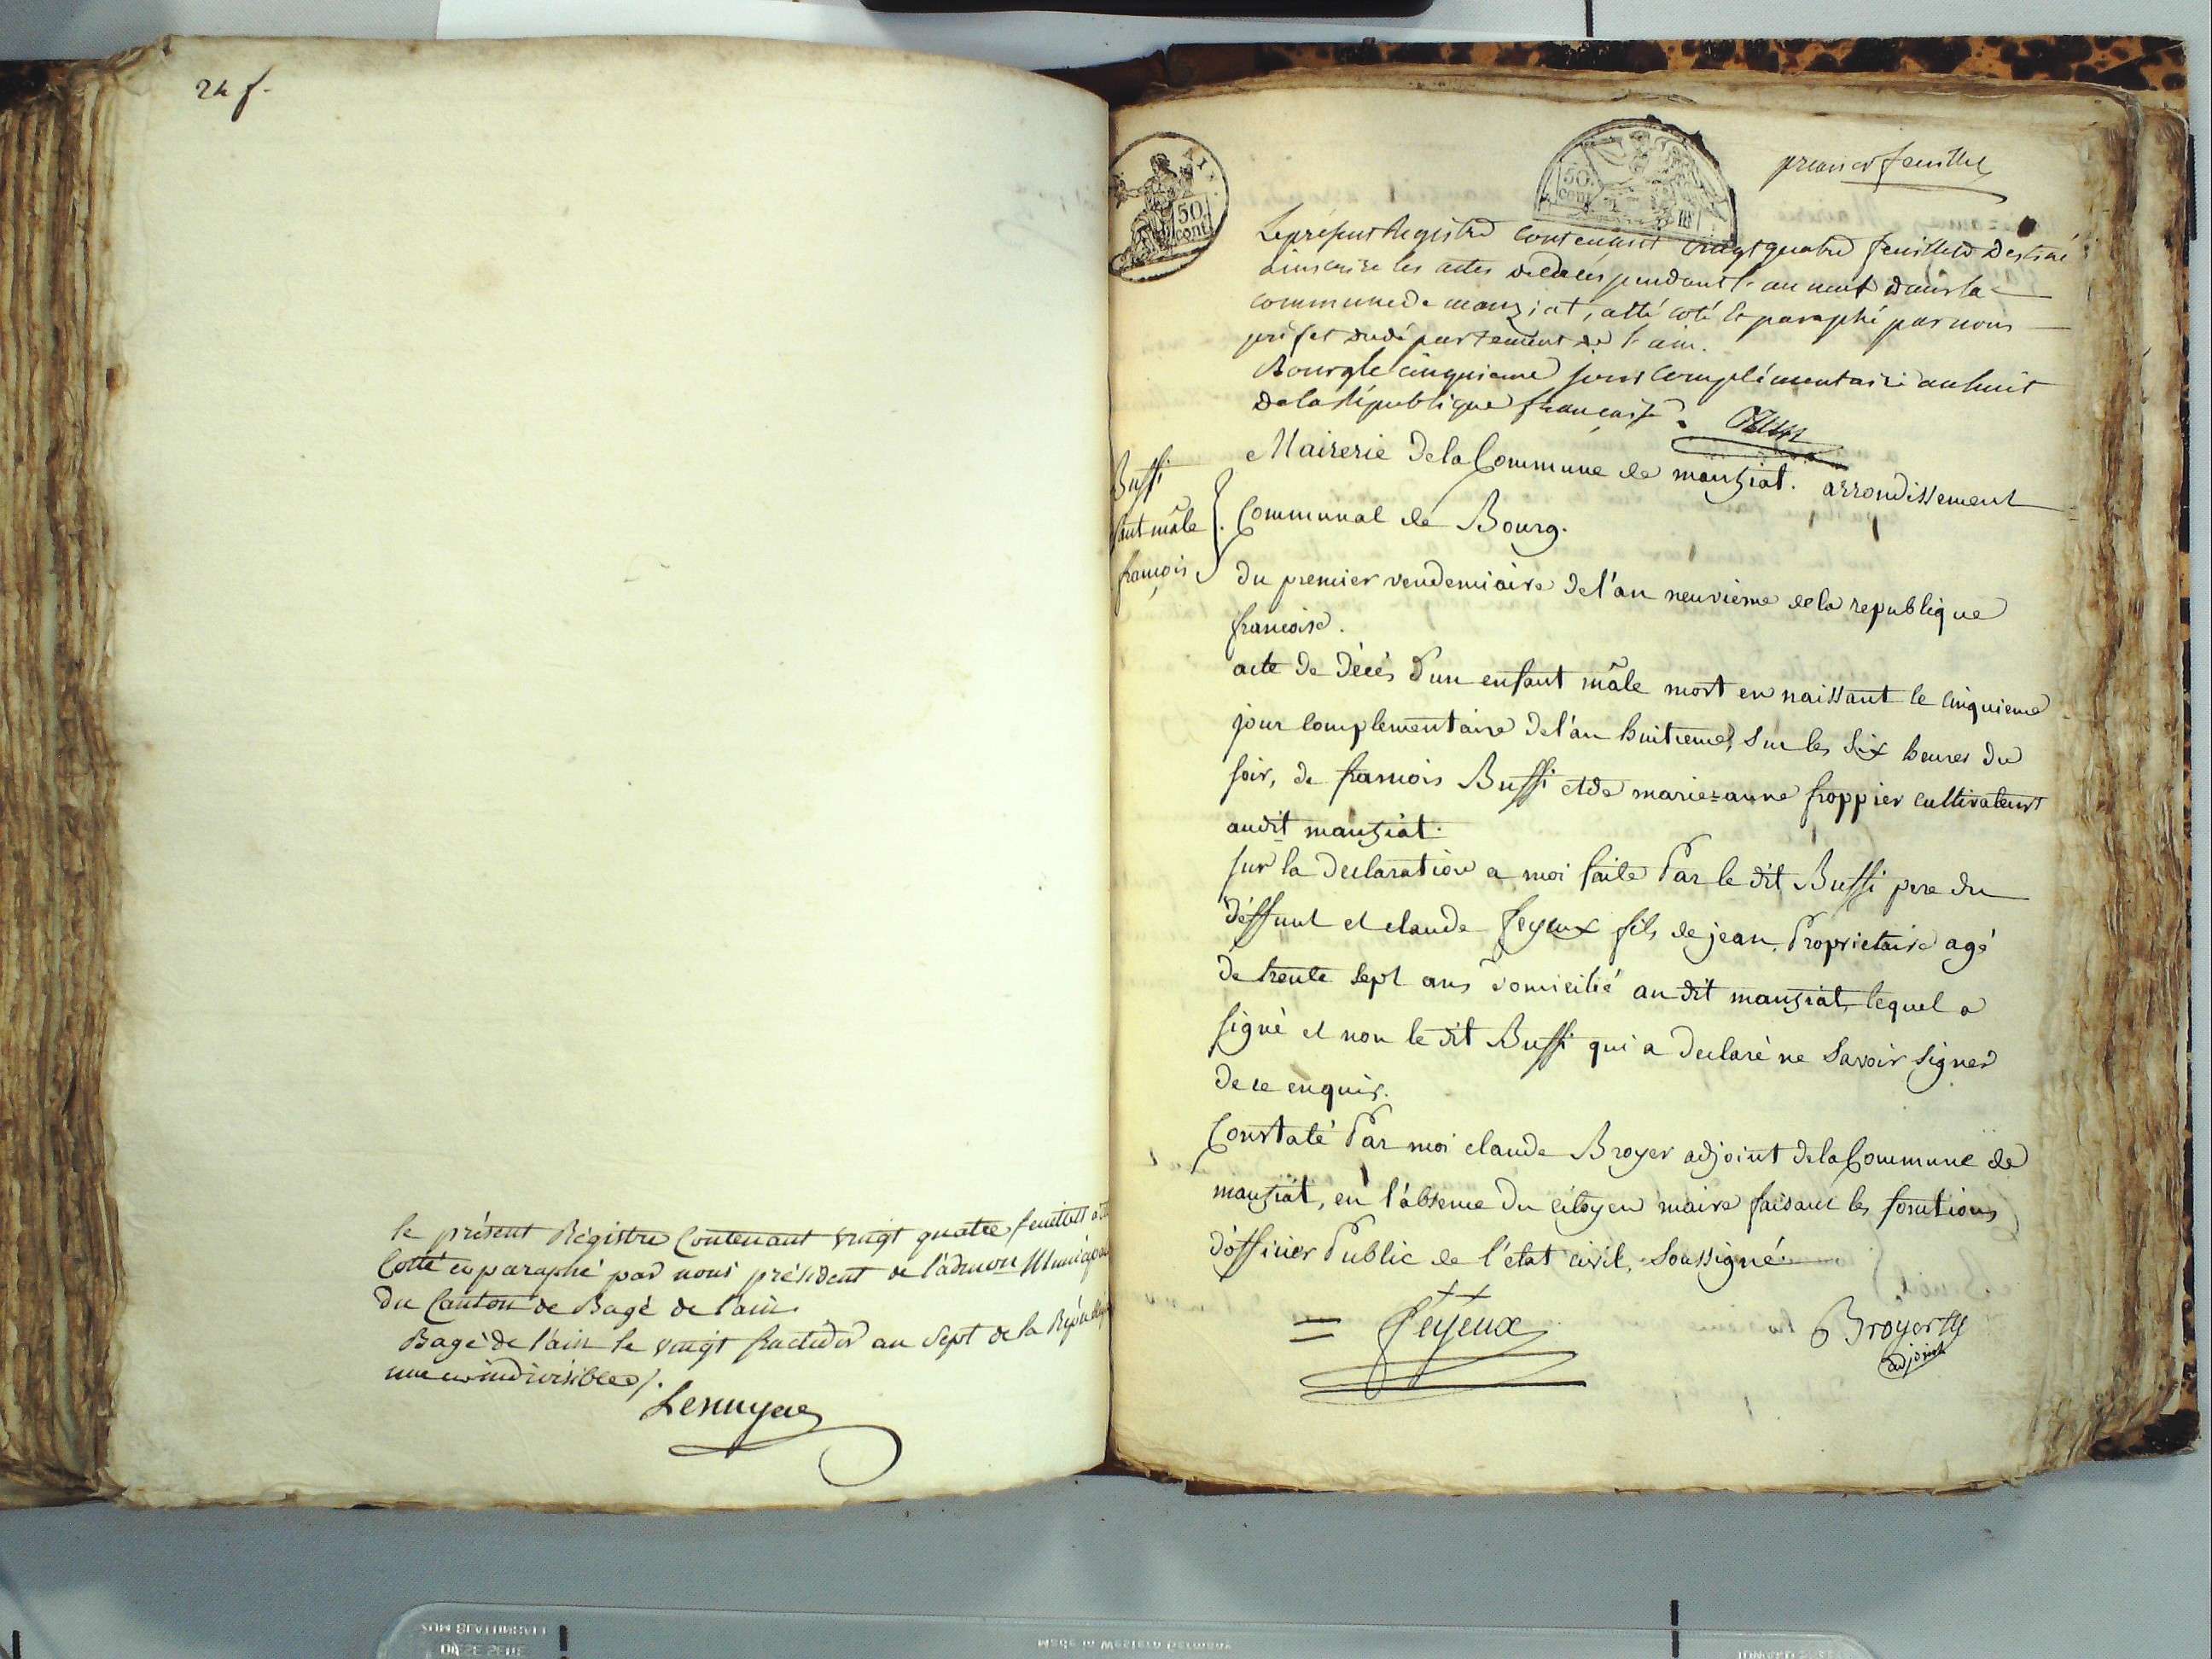 24 f.
le présent Régistre Contenant vingt quatre feuillets a été
Cotté et paraphé par nous président de l'admon Municipale
du Canton de Bagé de l'ain.
Bagé de l'ain le vingt fructidor an Sept de la République
une et indivisible /.
AIN.
50 cent
50. cent
premier feuillet
Le présent Registre contenant vingt quatre feuillets Destiné
a inscrire les actes de decès pendant l'an neuf dans la
commune de manziat, a été coté et paraphé par nous
préfet du département de l'ain.
Bourg le cinquieme jour complémentaire an huit
de la république française.
Mairerie de la Commune de manziat. arrondissement
Communal de Bourg.
Buffi
fant mâle
françois
du premier vendemiaire de l'an neuvieme de la republique
francoise.
acte de décés d'un enfant mâle mort en naissant le cinquieme
jour complementaire de l'an huitieme, sur les six heures du
soir, de francois Buffi et de marie=anne froppier cultivateurs
audit manziat.
sur la declaration a moi faite Par le dit Buffi pere du
déffunt et claude feyeux fils de jean, Proprietaire agé
de trente sept ans domicilié au dit manziat, lequel a
signé et non le dit Buffi qui a declaré ne savoir signer
de ce enquis.
Constaté Par moi claude Broyer adjoint de la Commune de
manziat, en l'absence du citoyen maire faisant les fonctions
d'officier Public de l'état civil, soussigné.
= feyeux
Broyer
adjoint
Made in Western Germany